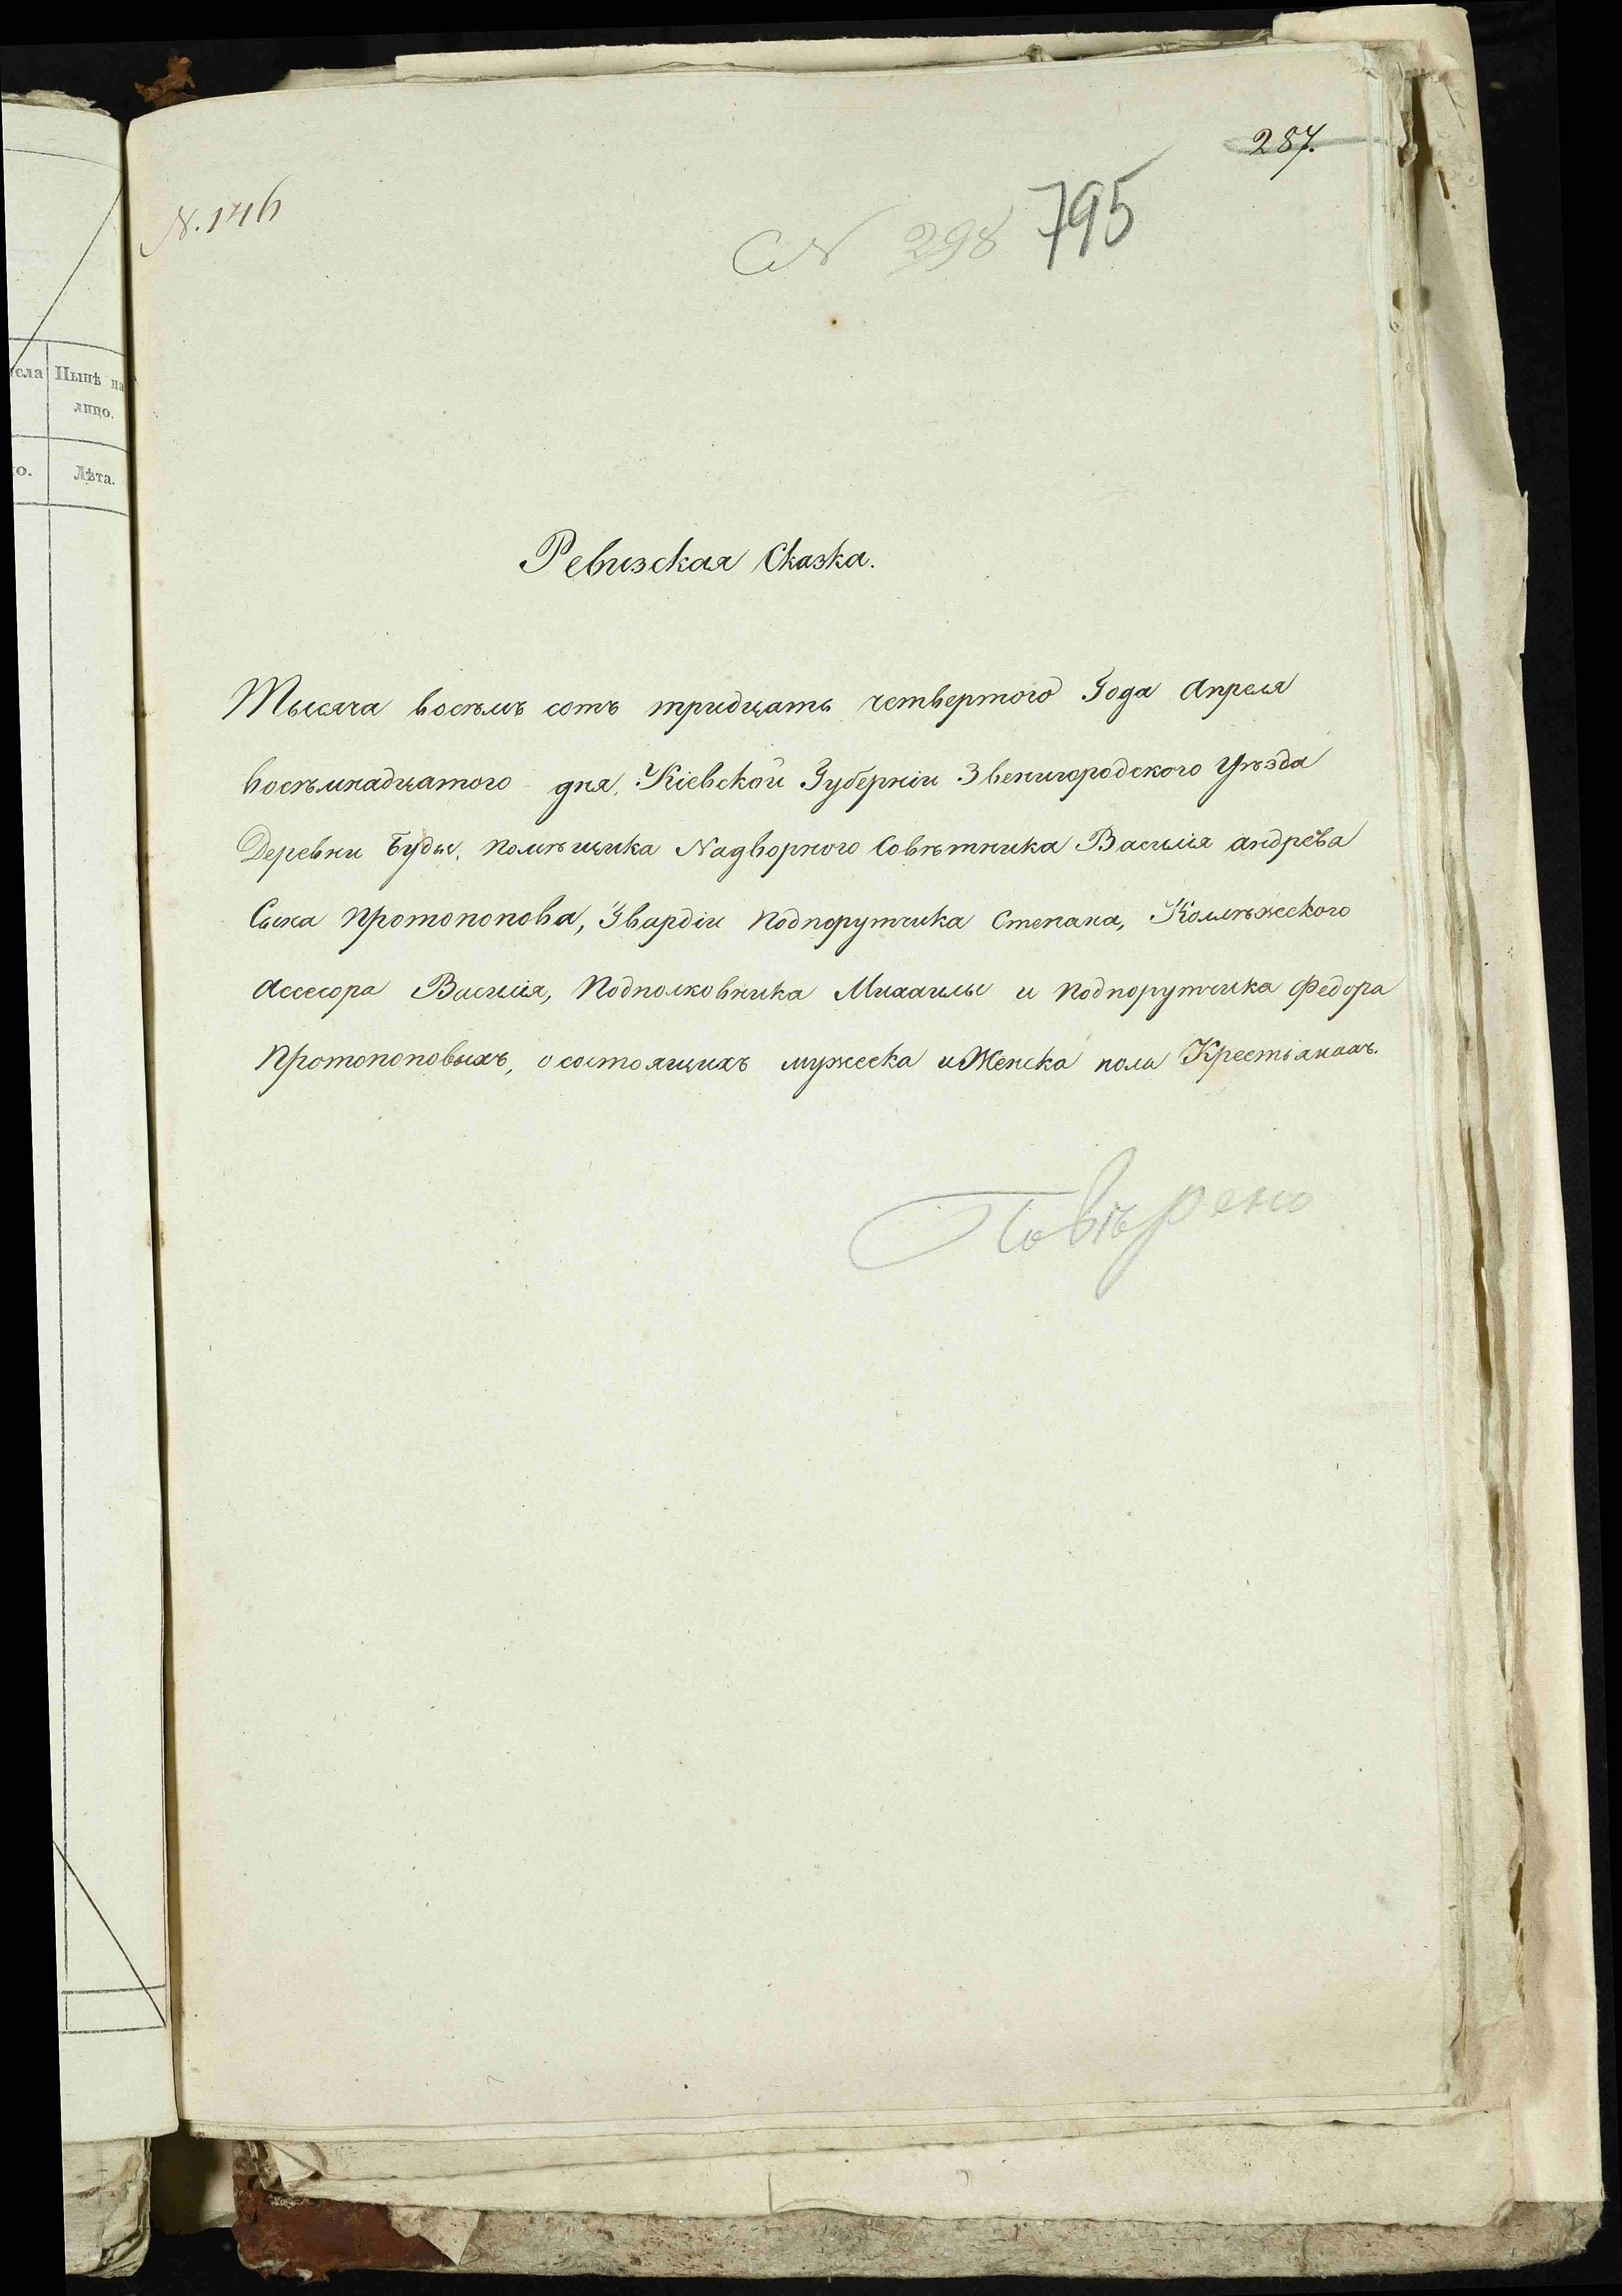 287.
N. 146
СN 298 795
Ревизская Сказка.
Тысяча восемъ сотъ тридцать четвертого Года Апреля
восемънадцатого дня, Кіевской Губерніи Звенигородского Уѣзда
Деревни Буды, помѣщика Nадворного Совѣтника Василія андрева
Сына Протопопова, Гвардіи Подпорутчика Степана, Коллѣжского
Ассесора Василія, Подполковника Михаилы и Подпорутчика Федора
Протопоповыхъ, о состоящихъ мужеска и Женска пола Крестьянахъ.
Повѣрено
сла Нынѣ на
лицо.
о. Лѣта.